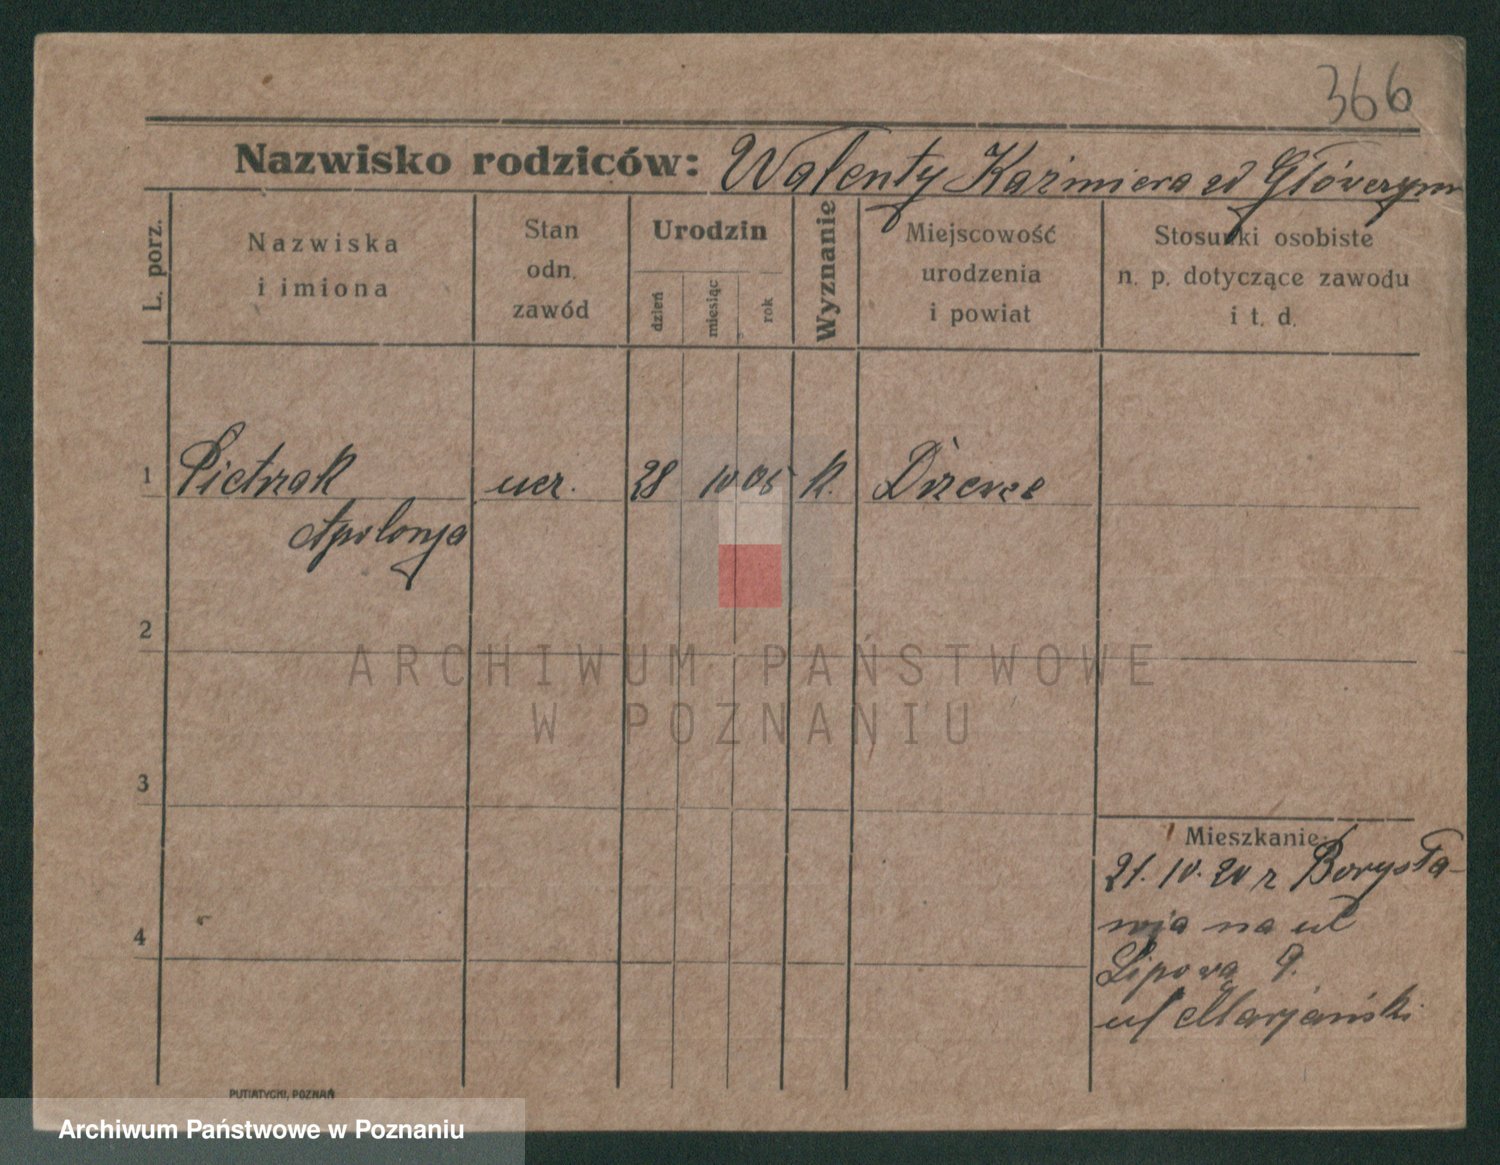 366
Nazwisko rodziców: Walenty Kaźmiera zd Głowczym
L. porz.
Nazwiska
i imiona
Stan
odn.
zawód
Urodzin
dzień
miesiąc
rok
Wyznanie
Miejscowość
urodzenia
i powiat
Stosunki osobiste
n. p. dotyczące zawodu
i t. d.
1 Pietrzak ucz. 28 10 05 k.
Apolonja
2
ARCHIWUM PAŃSTWOWE
W POZNANIU
3
Mieszkanie:
21. 10. 20 z Borysła-
wia na ul
Lipową 9.
ul Marjański
4
PUTIATYCKI, POZNAŃ
Archiwum Państwowe w Poznaniu